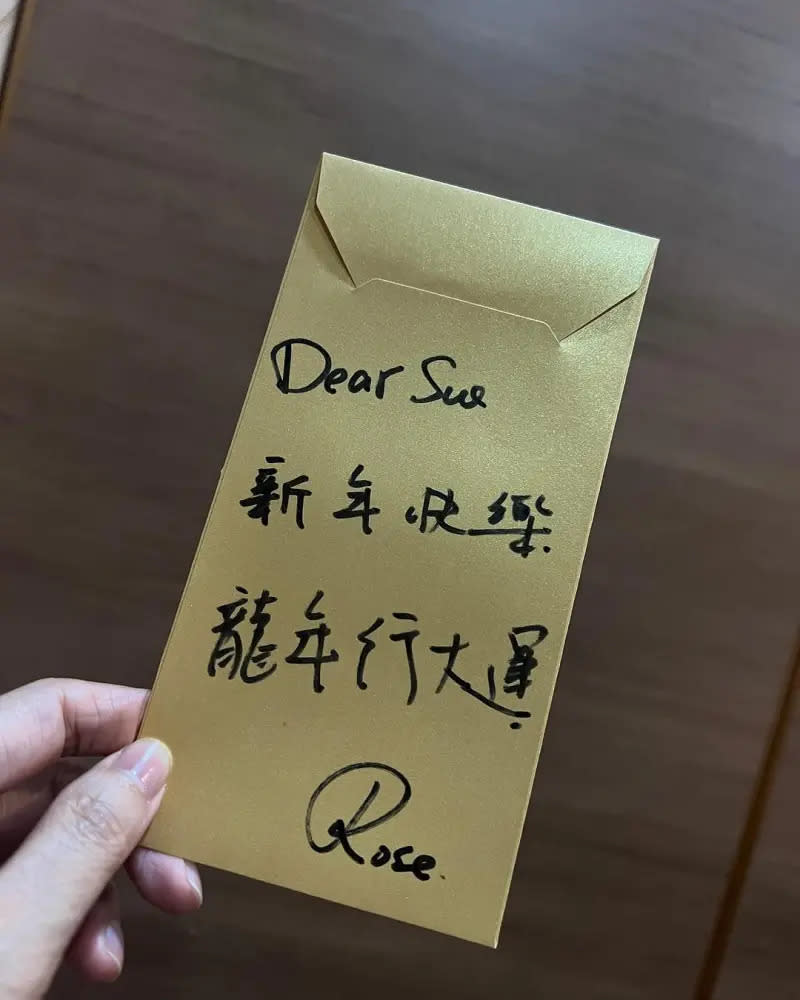 Dear Sue
新年快樂.
龍年行大運.
Rose.